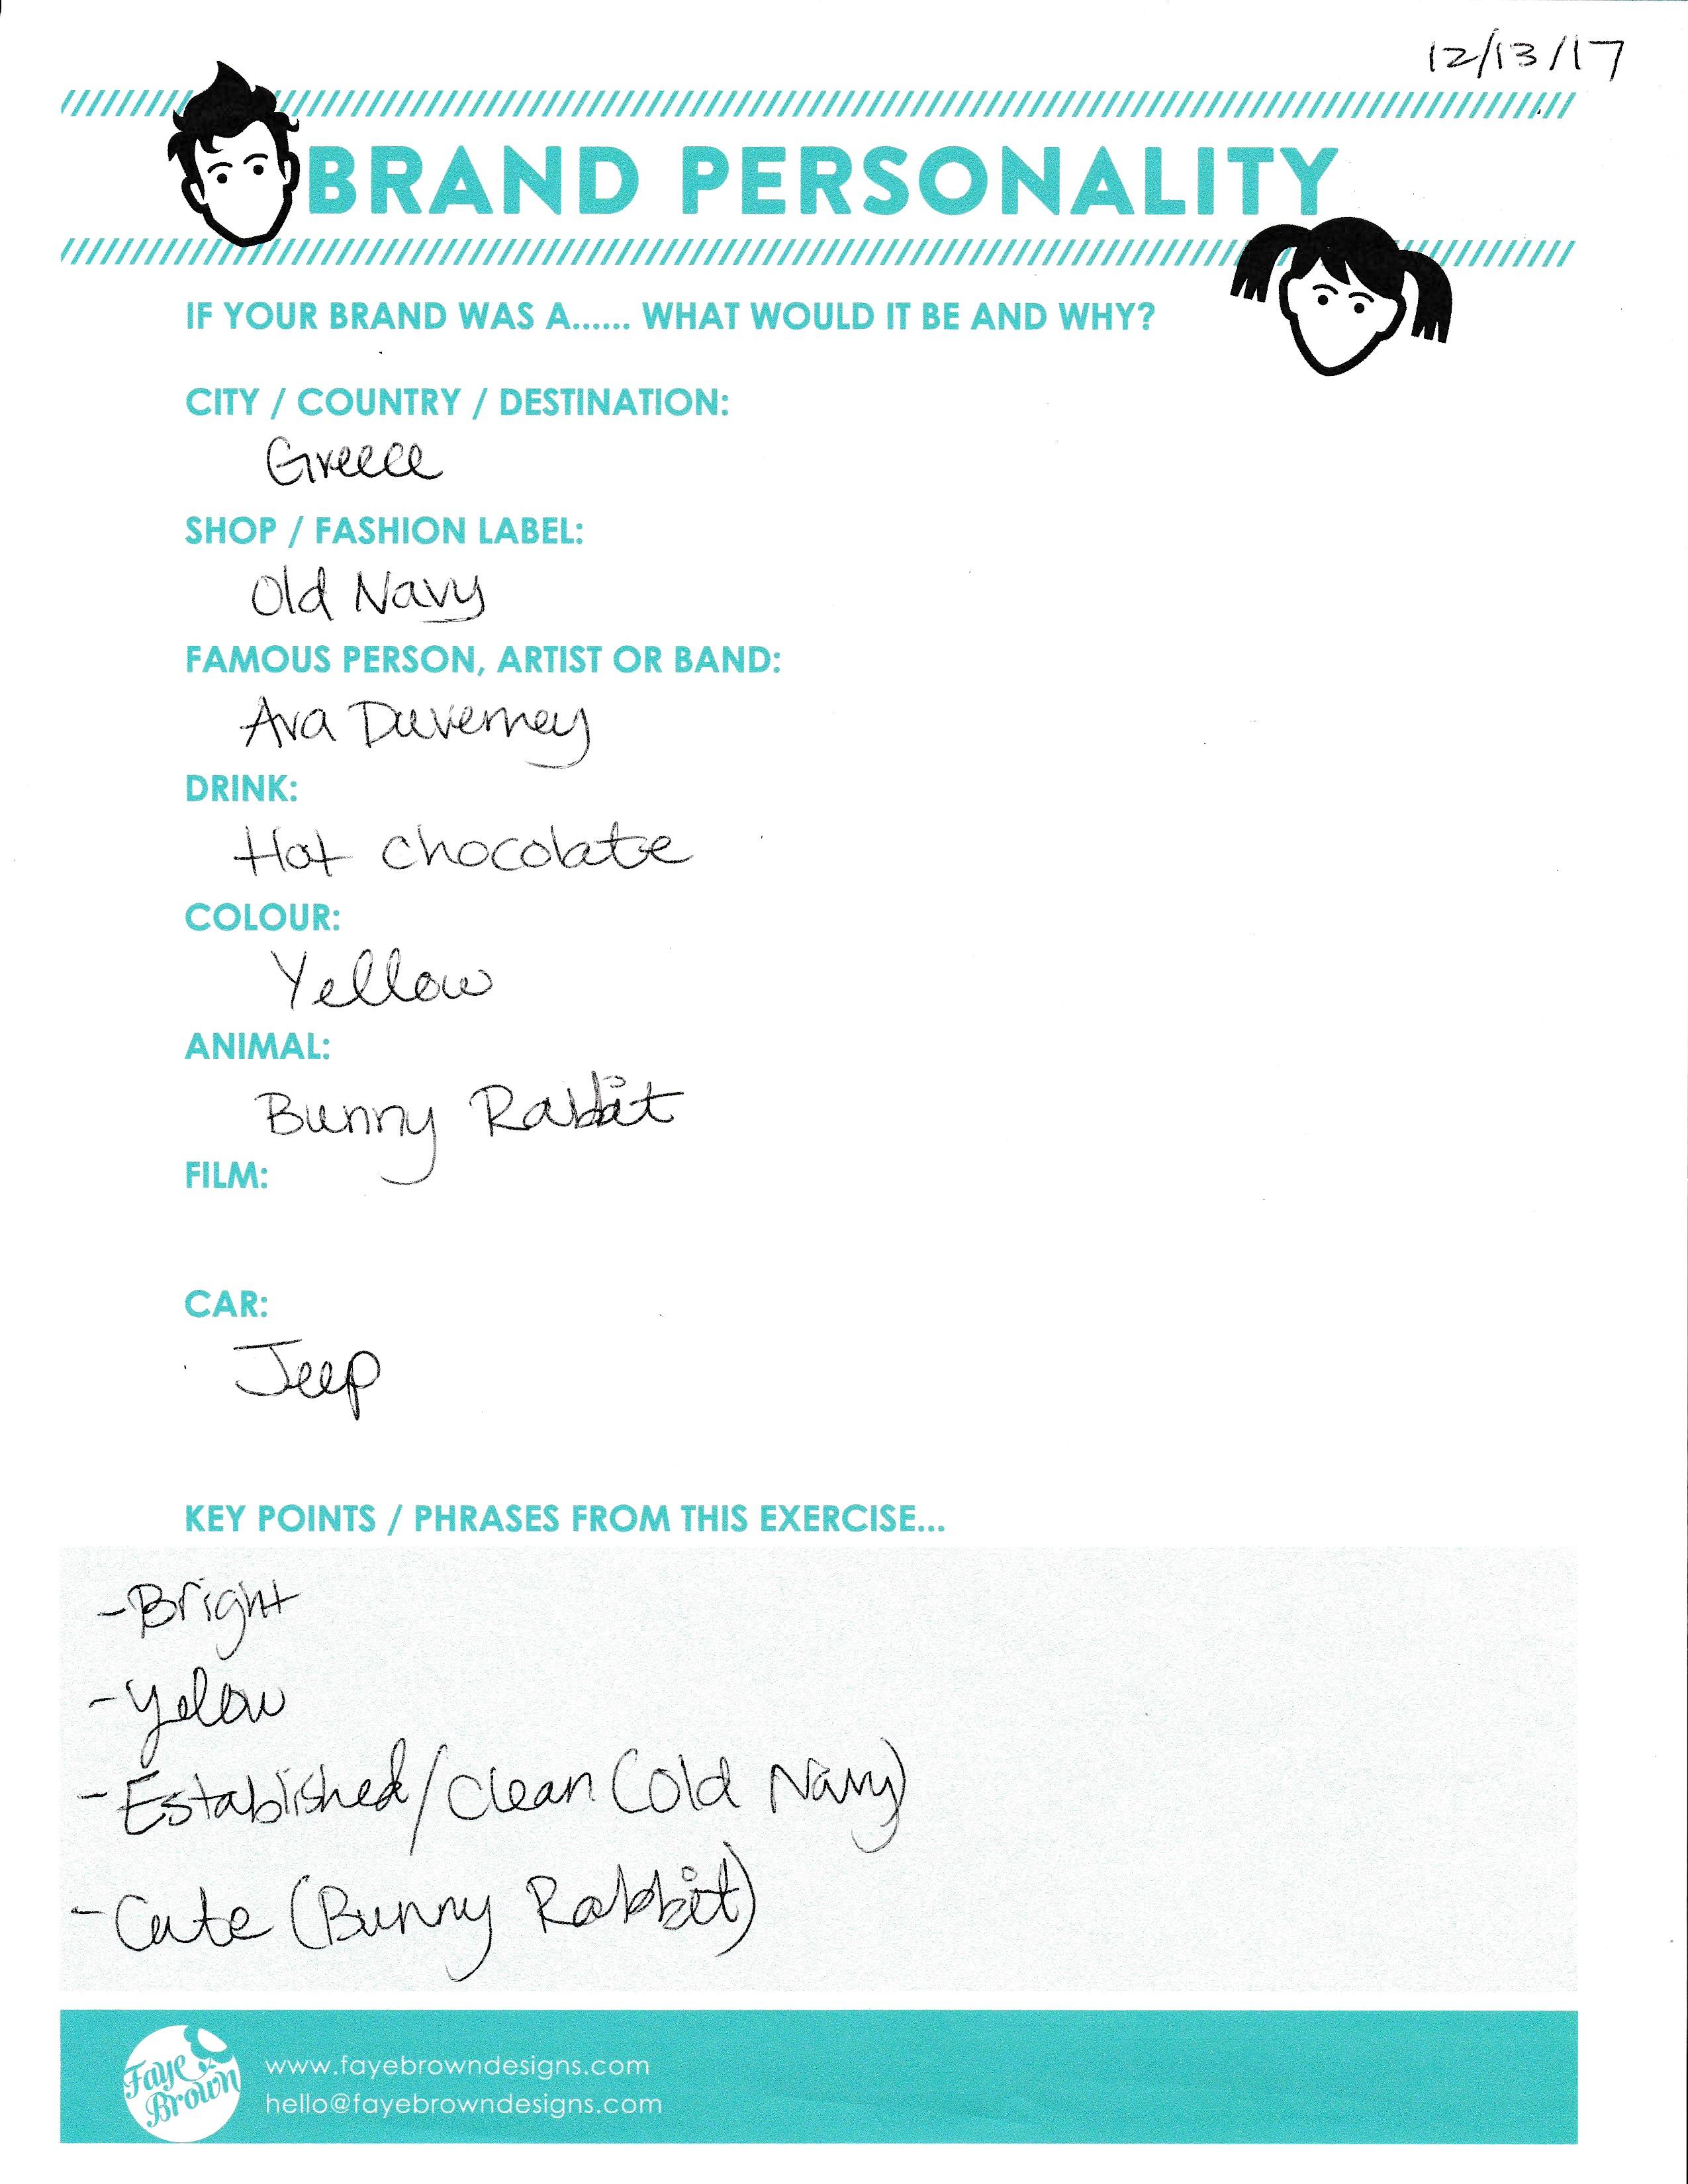 12/13/17
BRAND PERSONALITY
IF YOUR BRAND WAS A...... WHAT WOULD IT BE AND WHY?
CITY / COUNTRY / DESTINATION:
Greece
SHOP / FASHION LABEL:
Old Navy
FAMOUS PERSON, ARTIST OR BAND:
Ava Duverney
DRINK:
Hot chocolate
COLOUR:
Yellow
ANIMAL:
Bunny Rabbit
FILM:
CAR:
Jeep
KEY POINTS / PHRASES FROM THIS EXERCISE...
-Bright
-Yelow
-Established/Clean (Old Navy)
-Cute (Bunny Rabbit)
Faye
Brown
www.fayebrowndesigns.com
hello@fayebrowndesigns.com